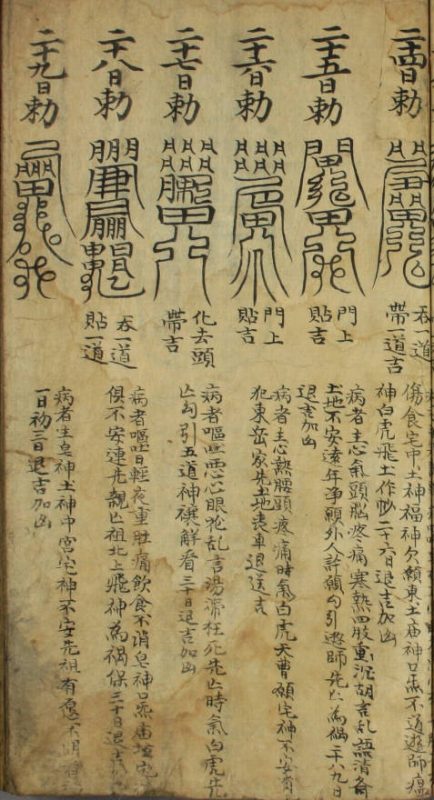 二十四日勅
吞一道
帶一道吉
傷食宅中土神福神欠願東土庙神口炁不道遊師瘟
神白虎飛土作吵二十六日退吉加凶
二十五日勅
門上
貼吉
病者主心氣頭腦疼痛寒熱四肢重沉胡言乱語
土地不安遠年淨願外人許願勾引遊師先亡為禍二十八九日
退吉加凶
二十六日勅
門上
貼吉
病者主心熱腰頸疼痛時氣白虎天曹願宅神不安有
犯東岳家先土地喪車退送吉
二十七日勅
化去頭
帶吉
病者嘔噁心眼花乱言湯滯枉死先亡時氣白虎先
亡勾引五道神禳解看三十日退吉加凶
二十八日勅
吞一道
貼一道
病者嘔吐日輕夜重肚痛飲食不消皂神口炁庙垣宅
俱不安連先親亡祖北上飛神為禍保三十日退吉
二十九日勅
病者主皂神土神中宫宅神不安先祖有愿不消
一日初三日退吉加凶